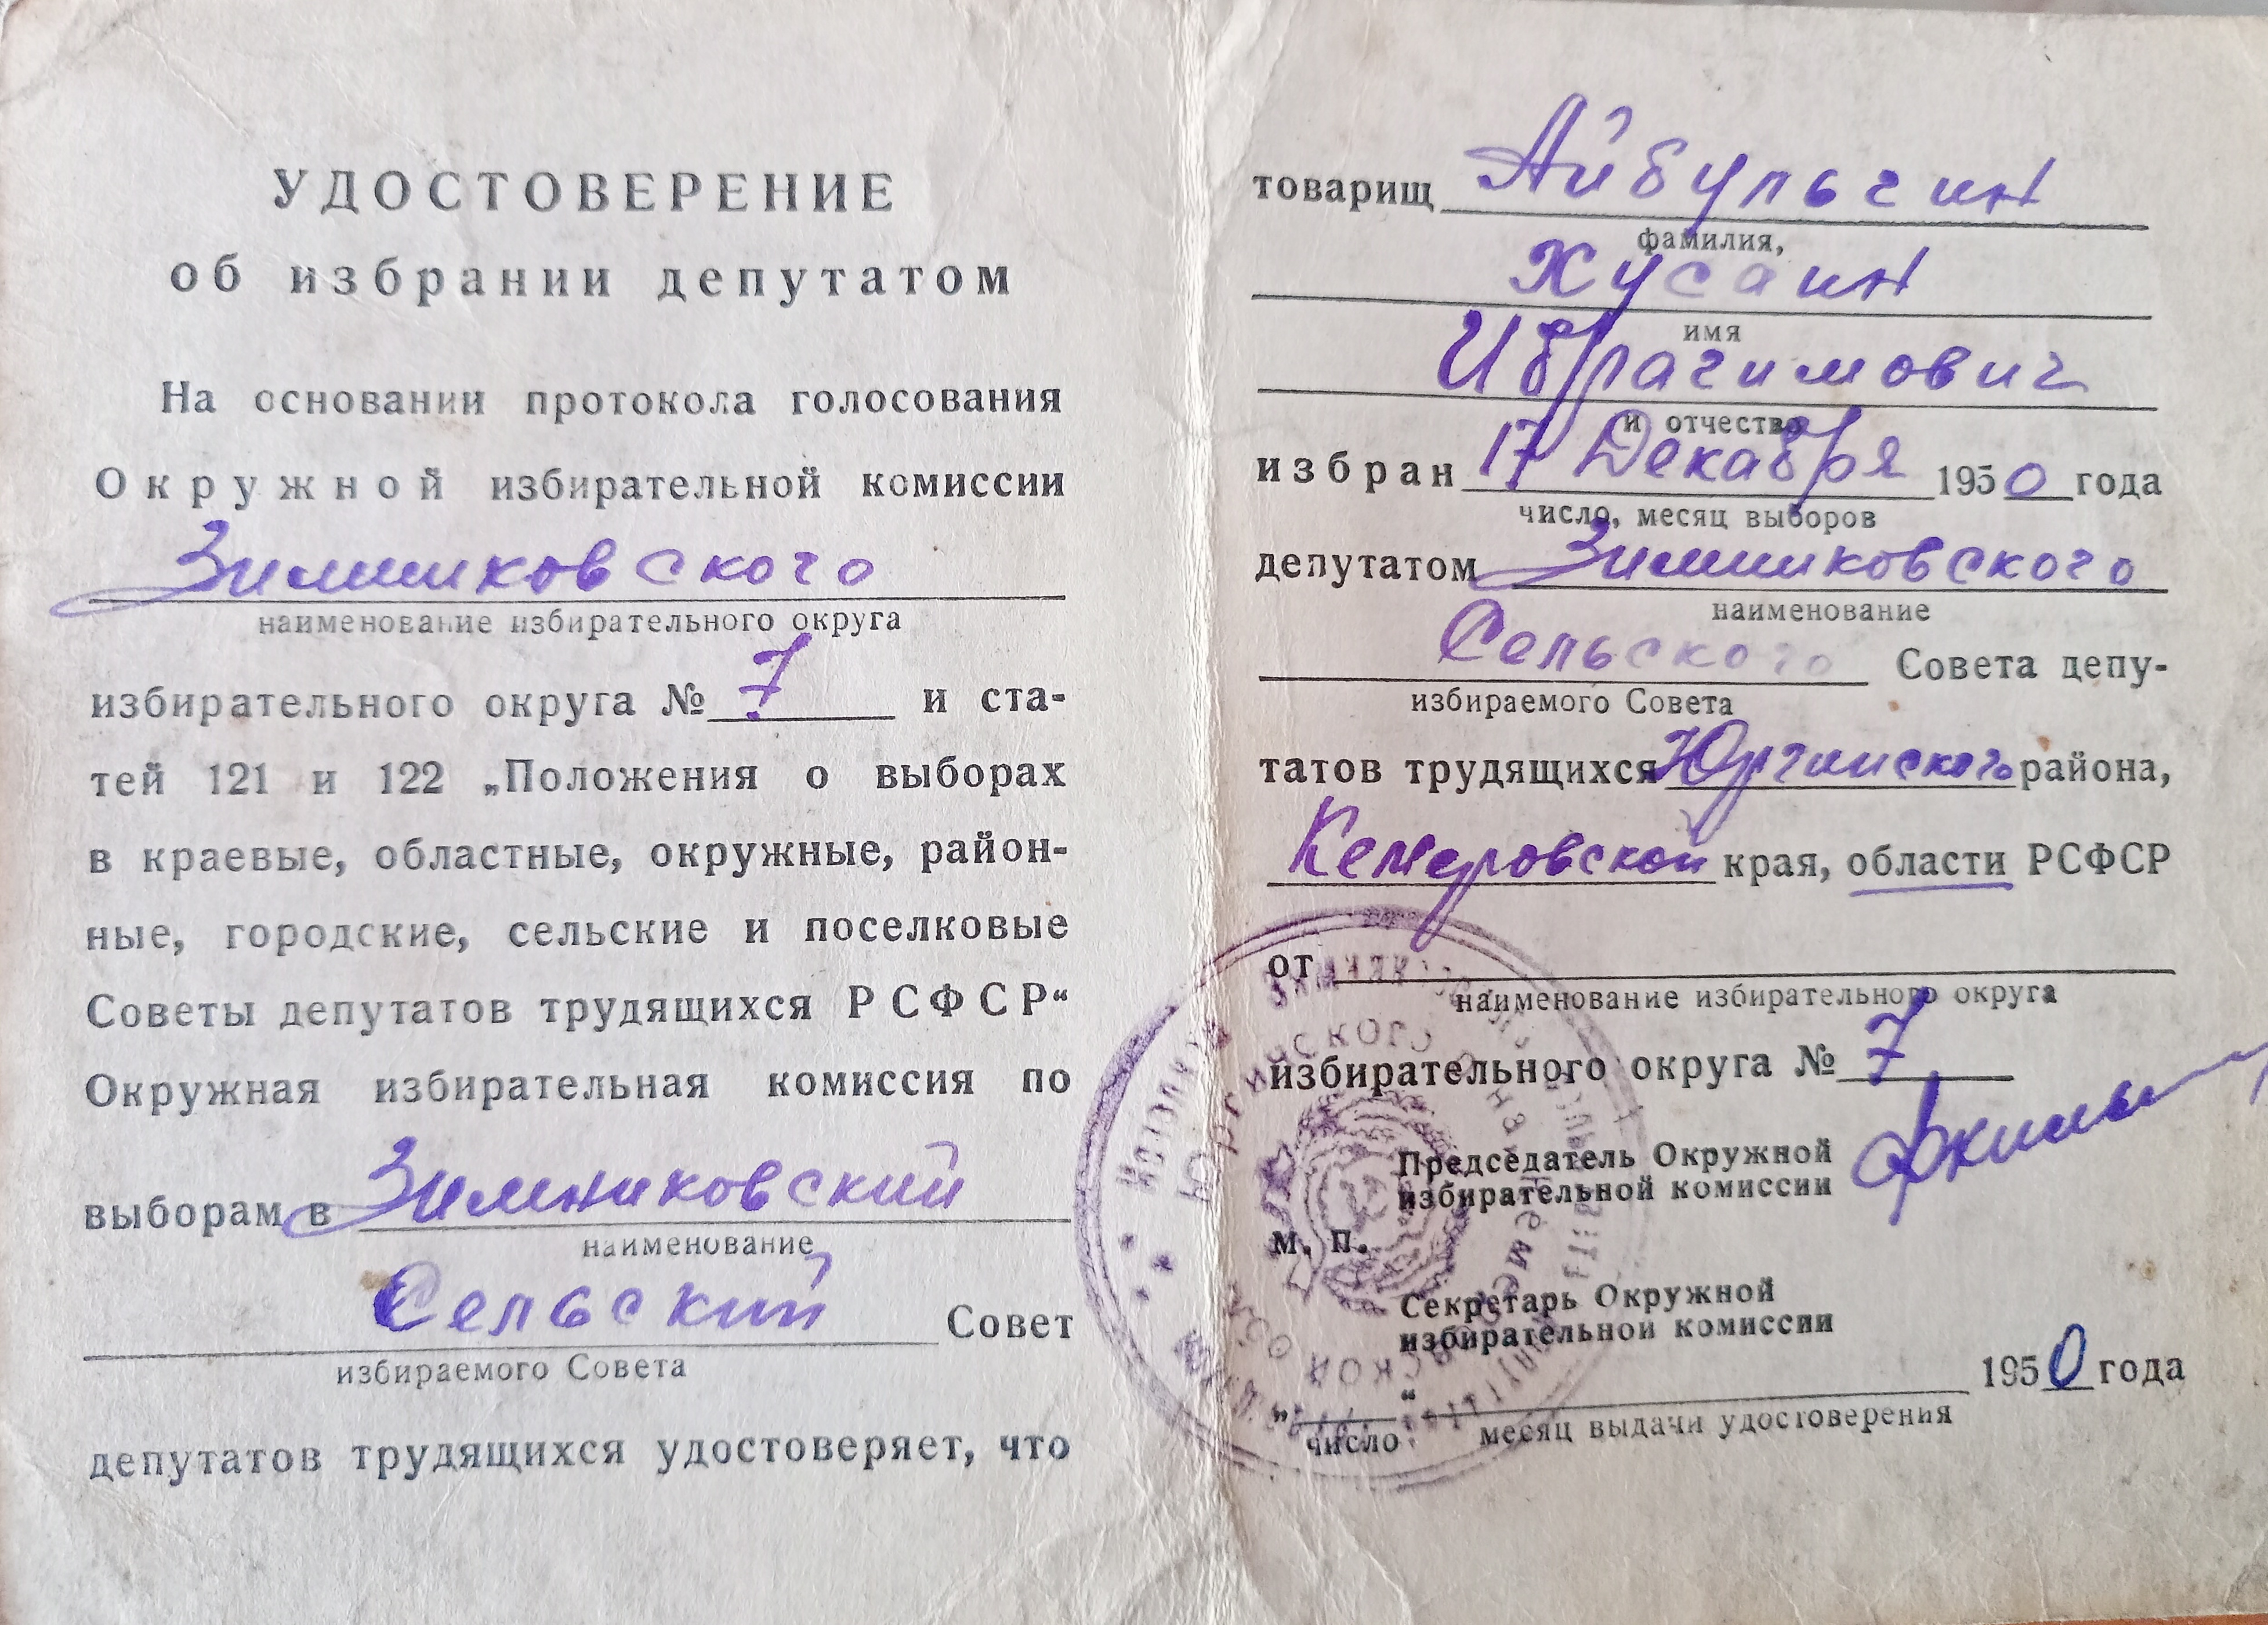 УДОСТОВЕРЕНИЕ
об избрании депутатом
На основании протокола голосования
Окружной избирательной комиссии
Зимниковского
наименование избирательного округа
избирательного округа № 7 и ста-
тей 121 и 122 „Положения о выборах
в краевые, областные, окружные, район-
ные, городские, сельские и поселковые
Советы депутатов трудящихся РСФСР“
Окружная избирательная комиссия по
выборам в Зимниковский
наименование
Сельский Совет
избираемого Совета
депутатов трудящихся удостоверяет, что
товарищ Айбульгин
фамилия,
Хусаин
имя
Ибрагимович
и отчество
избран 17 Декабря 1950 года
число, месяц выборов
депутатом Зимниковского
наименование
Сельского Совета депу-
избираемого Совета
татов трудящихся Юргинского района,
Кемеровской края, области РСФСР
от
наименование избирательного округа
избирательного округа № 7
Председатель Окружной
избирательной комиссии
м. п.
Секретарь Окружной
избирательной комиссии
„ “ 1950 года
число месяц выдачи удостоверения